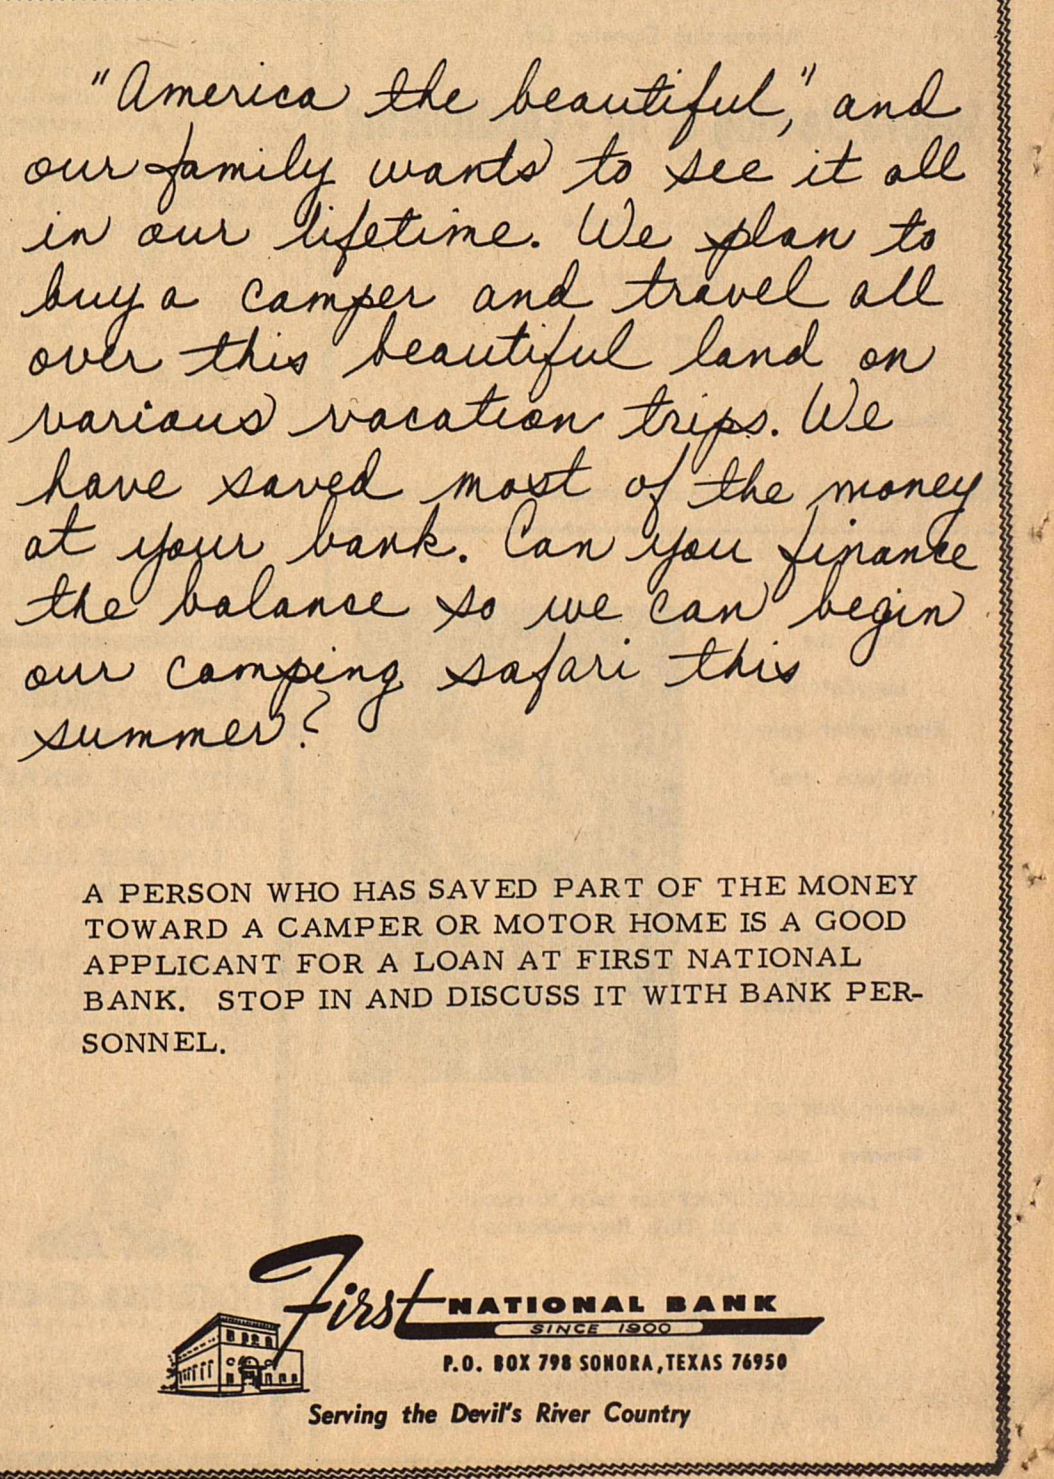 "America the beautiful," and
our family wants to see it all
in our lifetime. We plan to
buy a camper and travel all
over this beautiful land on
various vacation trips. We
have saved most of the money
at your bank. Can you finance
the balance so we can begin
our camping safari this
summer?
A PERSON WHO HAS SAVED PART OF THE MONEY
TOWARD A CAMPER OR MOTOR HOME IS A GOOD
APPLICANT FOR A LOAN AT FIRST NATIONAL
BANK. STOP IN AND DISCUSS IT WITH BANK PER-
SONNEL.
First NATIONAL BANK
SINCE 1900
P.O. BOX 798 SONORA, TEXAS 76950
Serving the Devil's River Country